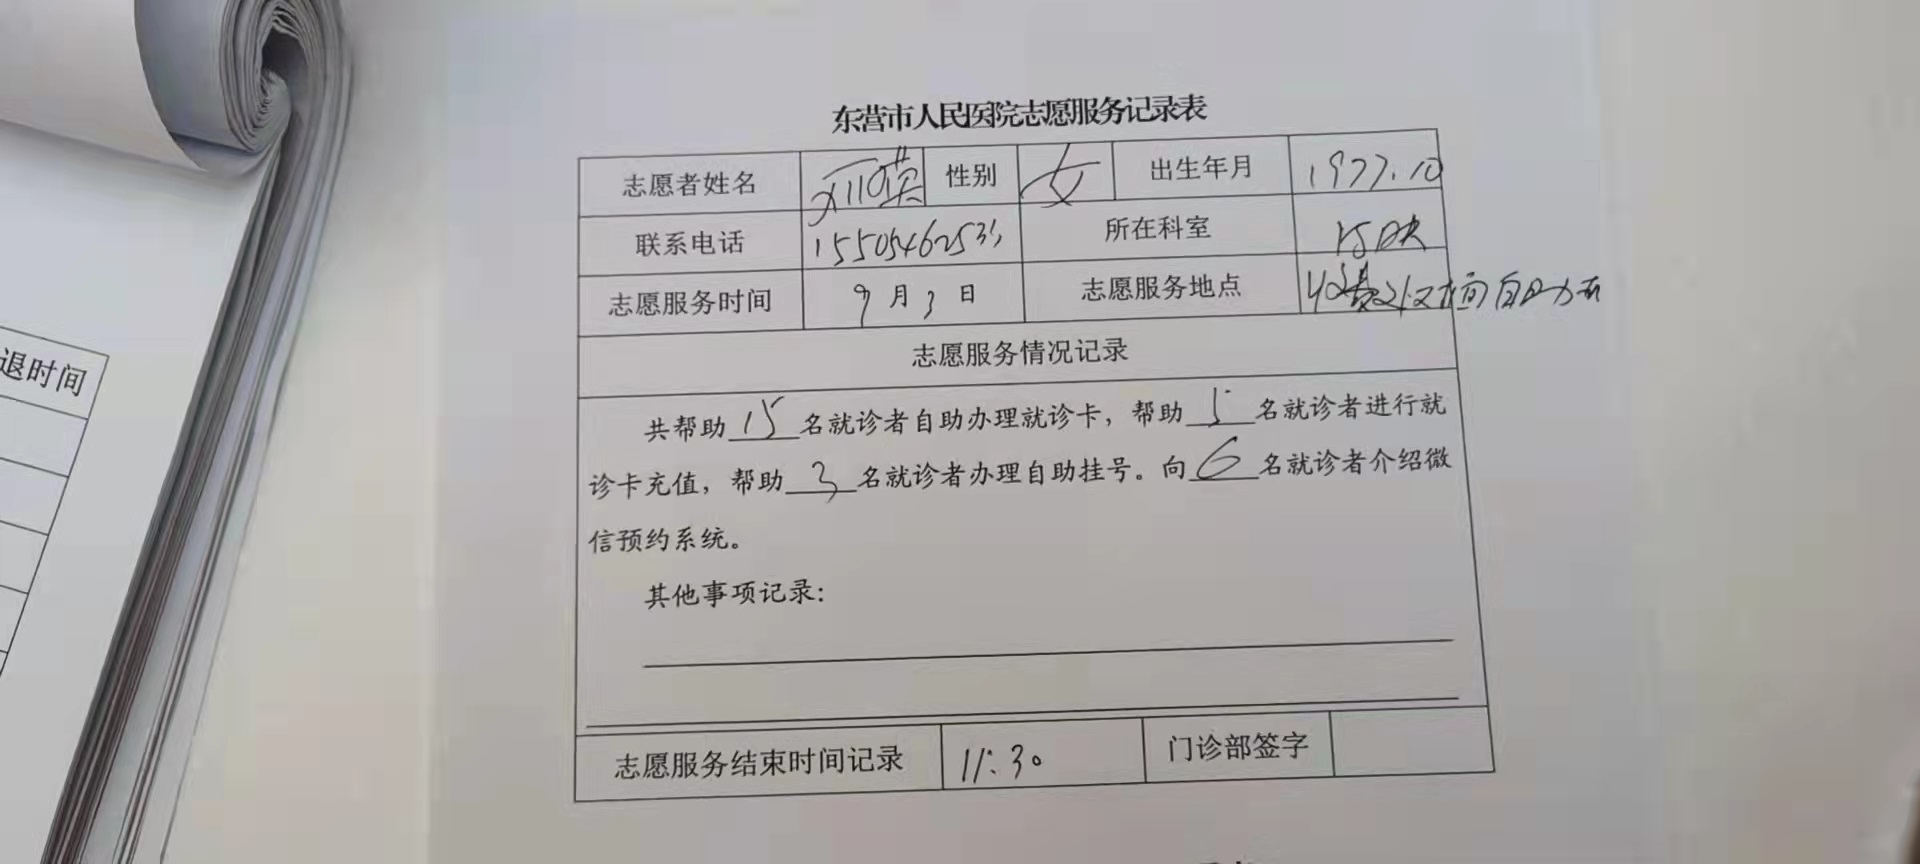 退时间
东营市人民医院志愿服务记录表
志愿者姓名 性别 女 出生年月 1977.10
联系电话 所在科室
志愿服务时间 9月3日 志愿服务地点
志愿服务情况记录
共帮助15名就诊者自助办理就诊卡，帮助5名就诊者进行就
诊卡充值，帮助3名就诊者办理自助挂号。向6名就诊者介绍微
信预约系统。
其他事项记录：
志愿服务结束时间记录 11:30 门诊部签字